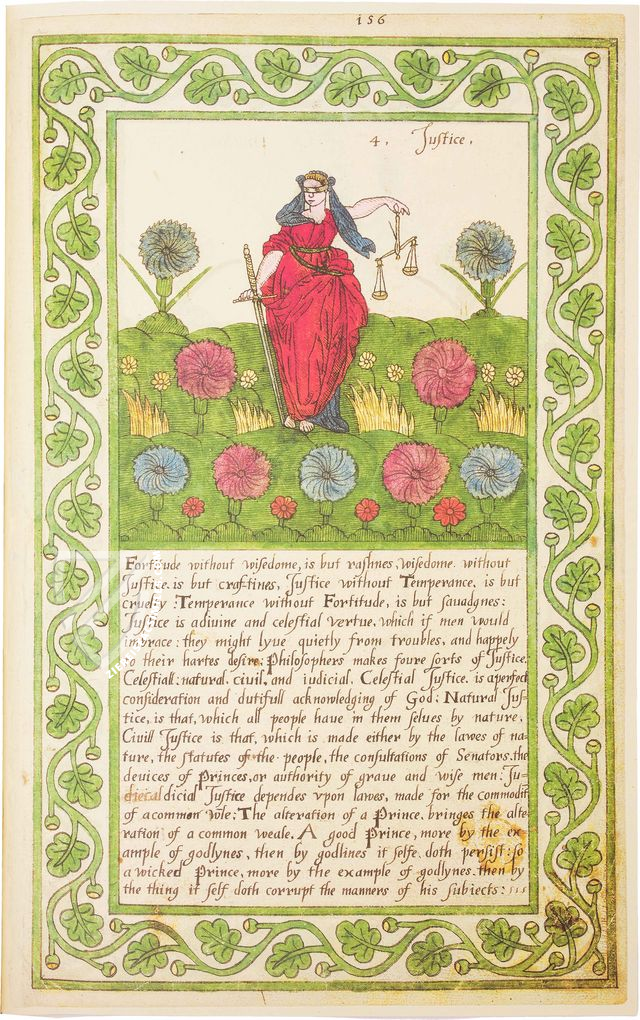 156
4. Justice.
Fortitude without wisedome, is but rashnes, wisedome without
Justice is but craftines, Justice without Temperance, is but
cruelty: Temperance without Fortitude, is but sauadgnes:
Justice is a diuine and celestial vertue, which if men would
imbrace: they might lyue quietly from troubles, and happely
to their hartes desire: Philosophers makes foure sorts of Justice:
Celestiall: natural, ciuil, and iudicial. Celestial Justice, is a perfect
consideration and dutifull acknowledging of God: Natural Jus-
tice, is that, which all people haue in them selues by nature.
Ciuill Justice is that, which is made either by the lawes of na-
ture, the statutes of the people, the consultations of Senators, the
deuices of Princes, or authority of graue and wise men: Ju-
dicial Justice dependes vpon lawes, made for the commodit
of a common wle: The alteration of a Prince, bringes the alte-
ration of a common weale. A good Prince, more by the ex
ample of godlynes, then by godlines it selfe, doth persist: so
a wicked Prince, more by the example of godlynes, then by
the thing it self doth corrupt the manners of his subiects: